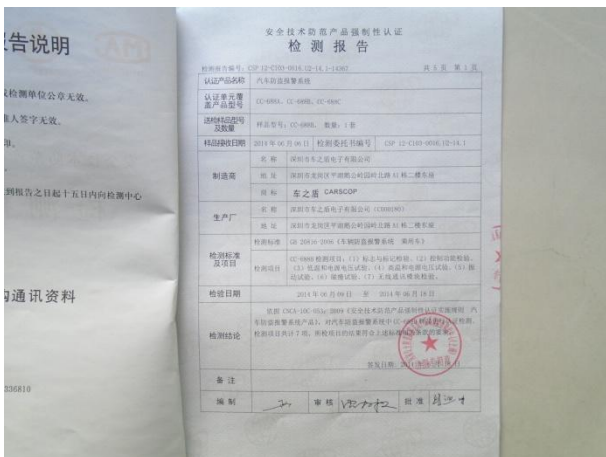 告说明
检测单位公章无效。
人签字无效。
到报告之日起十五日内向检测中心
通讯资料
336810
安全技术防范产品强制性认证
检测报告
检测报告编号：CSP 12-C103-0016.02-14.1-14362 共 5 页 第 1 页
认证产品名称 汽车防盗报警系统
认证单元覆盖产品型号 CC-698A、CC-698B、CC-698C
送检样品型号及数量 样品型号：CC-698B， 数量：5 套
样品接收日期 2014 年 06 月 06 日 检测委托书编号 CSP 12-C103-0016.12-14.1
制造商 名 称 深圳市车之盾电子有限公司
地 址 深圳市龙岗区平湖鹅公岭园岭北路 栋二楼东座
商 标 车之盾 CARSCOP
生产厂 名 称 深圳市车之盾电子有限公司
地 址 深圳市龙岗区平湖鹅公岭园岭北路 栋二楼东座
检测标准及项目 检测标准 GB 20816-2006《车辆防盗报警系统 乘用车》
检测项目 CC-698B 检测项目：（1）标志与标记检验、（2）控制功能检验、
（3）低温和电源电压试验、（4）高温和电源电压试验、（5）振
动试验、（6）碰撞试验、（7）无线通讯模组检验。
检验日期 2014 年 06 月 09 日 至 2014 年 06 月 18 日
检测结论 依据 CNCA-10C-055: 2009《安全技术防范产品强制性认证实施规则 汽
车防盗报警系统产品》，对汽车防盗报警系统中 CC-698B
检测项目共计 7 项，所检项目的结果符合上述标准
签发日期：
备 注
编 制 审 核 批 准